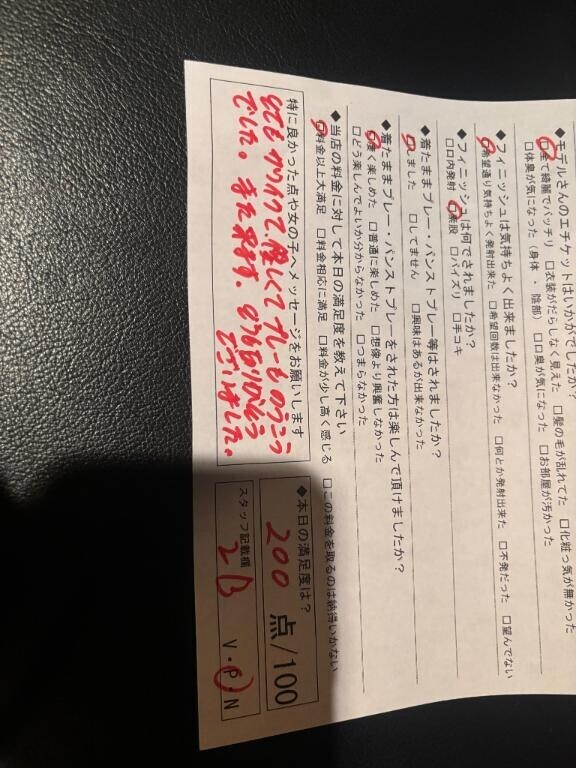 ◆モデルさんのエチケットはいかがでしたか？
□全て綺麗でバッチリ □衣装がだらしなく見えた □髪の毛が乱れてた □化粧っ気が無かった
□体臭が気になった（身体・陰部） □口臭が気になった □お部屋が汚かった
◆フィニッシュは気持ちよく出来ましたか？
□希望通り気持ちよく発射出来た □希望回数は出来なかった □何とか発射出来た □不発だった □望んでない
◆フィニッシュは何でされましたか？
□口内発射 □素股 □パイズリ □手コキ
◆着たままプレー・パンストプレー等はされましたか？
□しました □してません □興味はあるが出来なかった
◆着たままプレー・パンストプレーをされた方は楽しんで頂けましたか？
□凄く楽しめた □普通に楽しめた □想像より興奮しなかった
□どう楽しんでよいか分からなかった □つまらなかった
◆当店の料金に対して本日の満足度を教えて下さい
□料金以上大満足 □料金相応に満足 □料金が少し高く感じる □この料金を取るのは納得いかない
特に良かった点や女の子へメッセージをお願いします
とても カワイクて、優しくて プレーもサイコー
でした。また来ます。
ありがとう
ございました。
◆本日の満足度は？
200 点/100
スタッフ記載欄
2B V・P・N